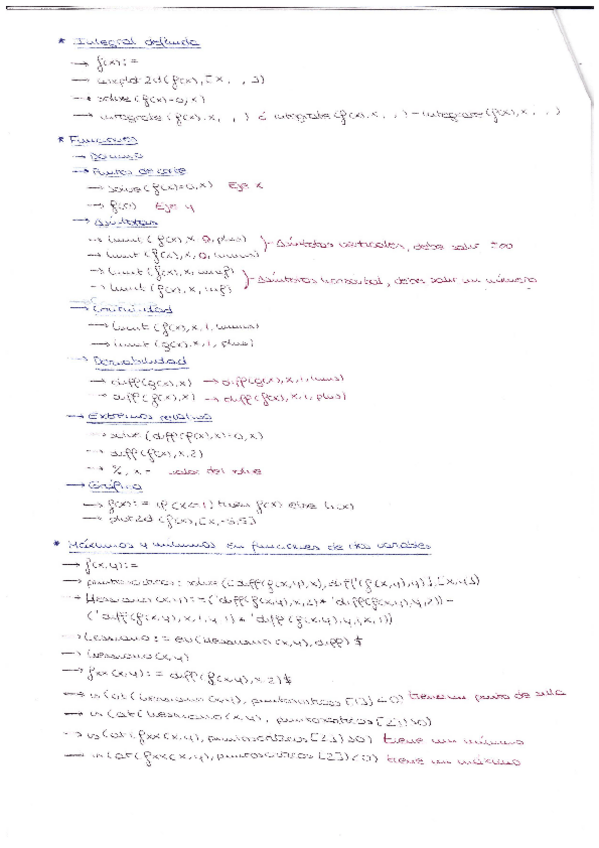 * Integral definida
→ f(x):=
→ wxplot2d(f(x),[x, , ])
→ solve(f(x)=0,x)
→ integrate(f(x),x, , ) ó integrate(f(x),x, , )-integrate(f(x),x, , )
* Funciones
→ Dominio
→ Puntos de corte
→ solve(f(x)=0,x) Eje x
→ f(0) Eje y
→ Asíntotas
→ limit(f(x),x,0,plus) }- Asíntotas verticales, debe salir ±∞
→ limit(f(x),x,0,minus)
→ limit(f(x),x,minf) }- Asíntotas horizontal, debe salir un número
→ limit(f(x),x,inf)
→ Continuidad
→ limit(f(x),x,1,minus)
→ limit(g(x),x,1,plus)
→ Derivabilidad
→ diff(g(x),x) → diff(g(x),x,1,minus)
→ diff(f(x),x) → diff(f(x),x,1,plus)
→ Extremos relativos
→ solve(diff(f(x),x)=0,x)
→ diff(f(x),x,2)
→ %, x= valor del solve
→ Gráfica
→ f(x):= if(x<=1) then f(x) else
→ plot2d(f(x),[x,-5,5]
* Máximos y mínimos en funciones de dos variables
→ f(x,y):=
→ puntoscriticos: solve([diff(f(x,y),x),diff(f(x,y),y)],[x,y])
→ Hessiano(x,y):=('diff(f(x,y),x,2)*'diff(f(x,y),y,2))-
('diff(f(x,y),x,1,y,1)*'diff(f(x,y),y,1,x,1))
→ Hessiano:= ev(Hessiano(x,y),diff)$
→ Hessiano(x,y)
→ fxx(x,y):= diff(f(x,y),x,2)$
→ is(at(Hessiano(x,y), puntoscriticos[1])<0) tiene un punto de silla
→ is(at(Hessiano(x,y), puntoscriticos[2])>0)
→ is(at(fxx(x,y),puntoscriticos[2])>0) tiene un mínimo
→ is(at(fxx(x,y),puntoscriticos[2])<0) tiene un máximo